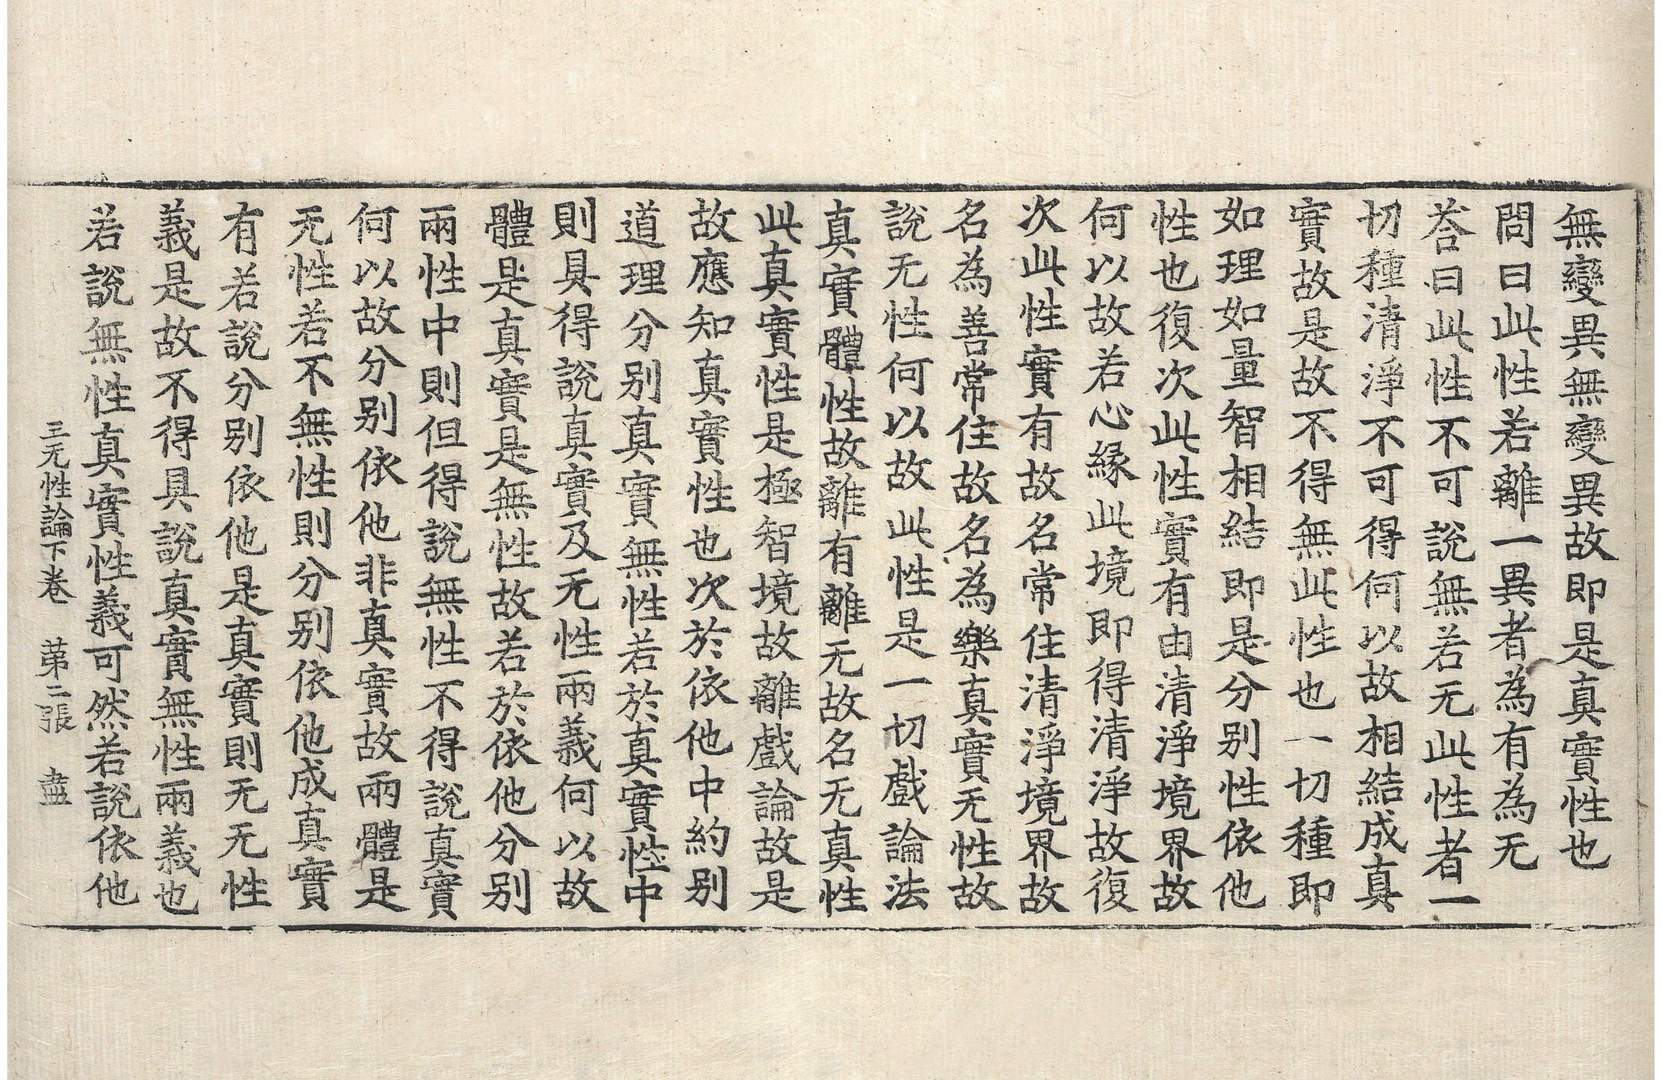 無變異無變異故即是真實性也
問曰此性若離一異者為有為无
荅曰此性不可說無若无此性者一
切種清淨不可得何以故相結成真
實故是故不得無此性也一切種即
如理如量智相結即是分別性依他
性也復次此性實有由清淨境界故
何以故若心緣此境即得清淨故復
次此性實有故名常住清淨境界故
名為善常住故名為樂真實无性故
說无性何以故此性是一切戲論法
真實體性故離有離无故名无真性
此真實性是極智境故離戲論故是
故應知真實性也次於依他中約別
道理分別真實無性若於真實性中
則具得說真實及无性兩義何以故
體是真實是無性故若於依他分別
兩性中則但得說無性不得說真實
何以故分別依他非真實故兩體是
无性若不無性則分別依他成真實
有若說分別依他是真實則无无性
義是故不得具說真實無性兩義也
若說無性真實性義可然若說依他
三无性論下卷 苐二張 盡